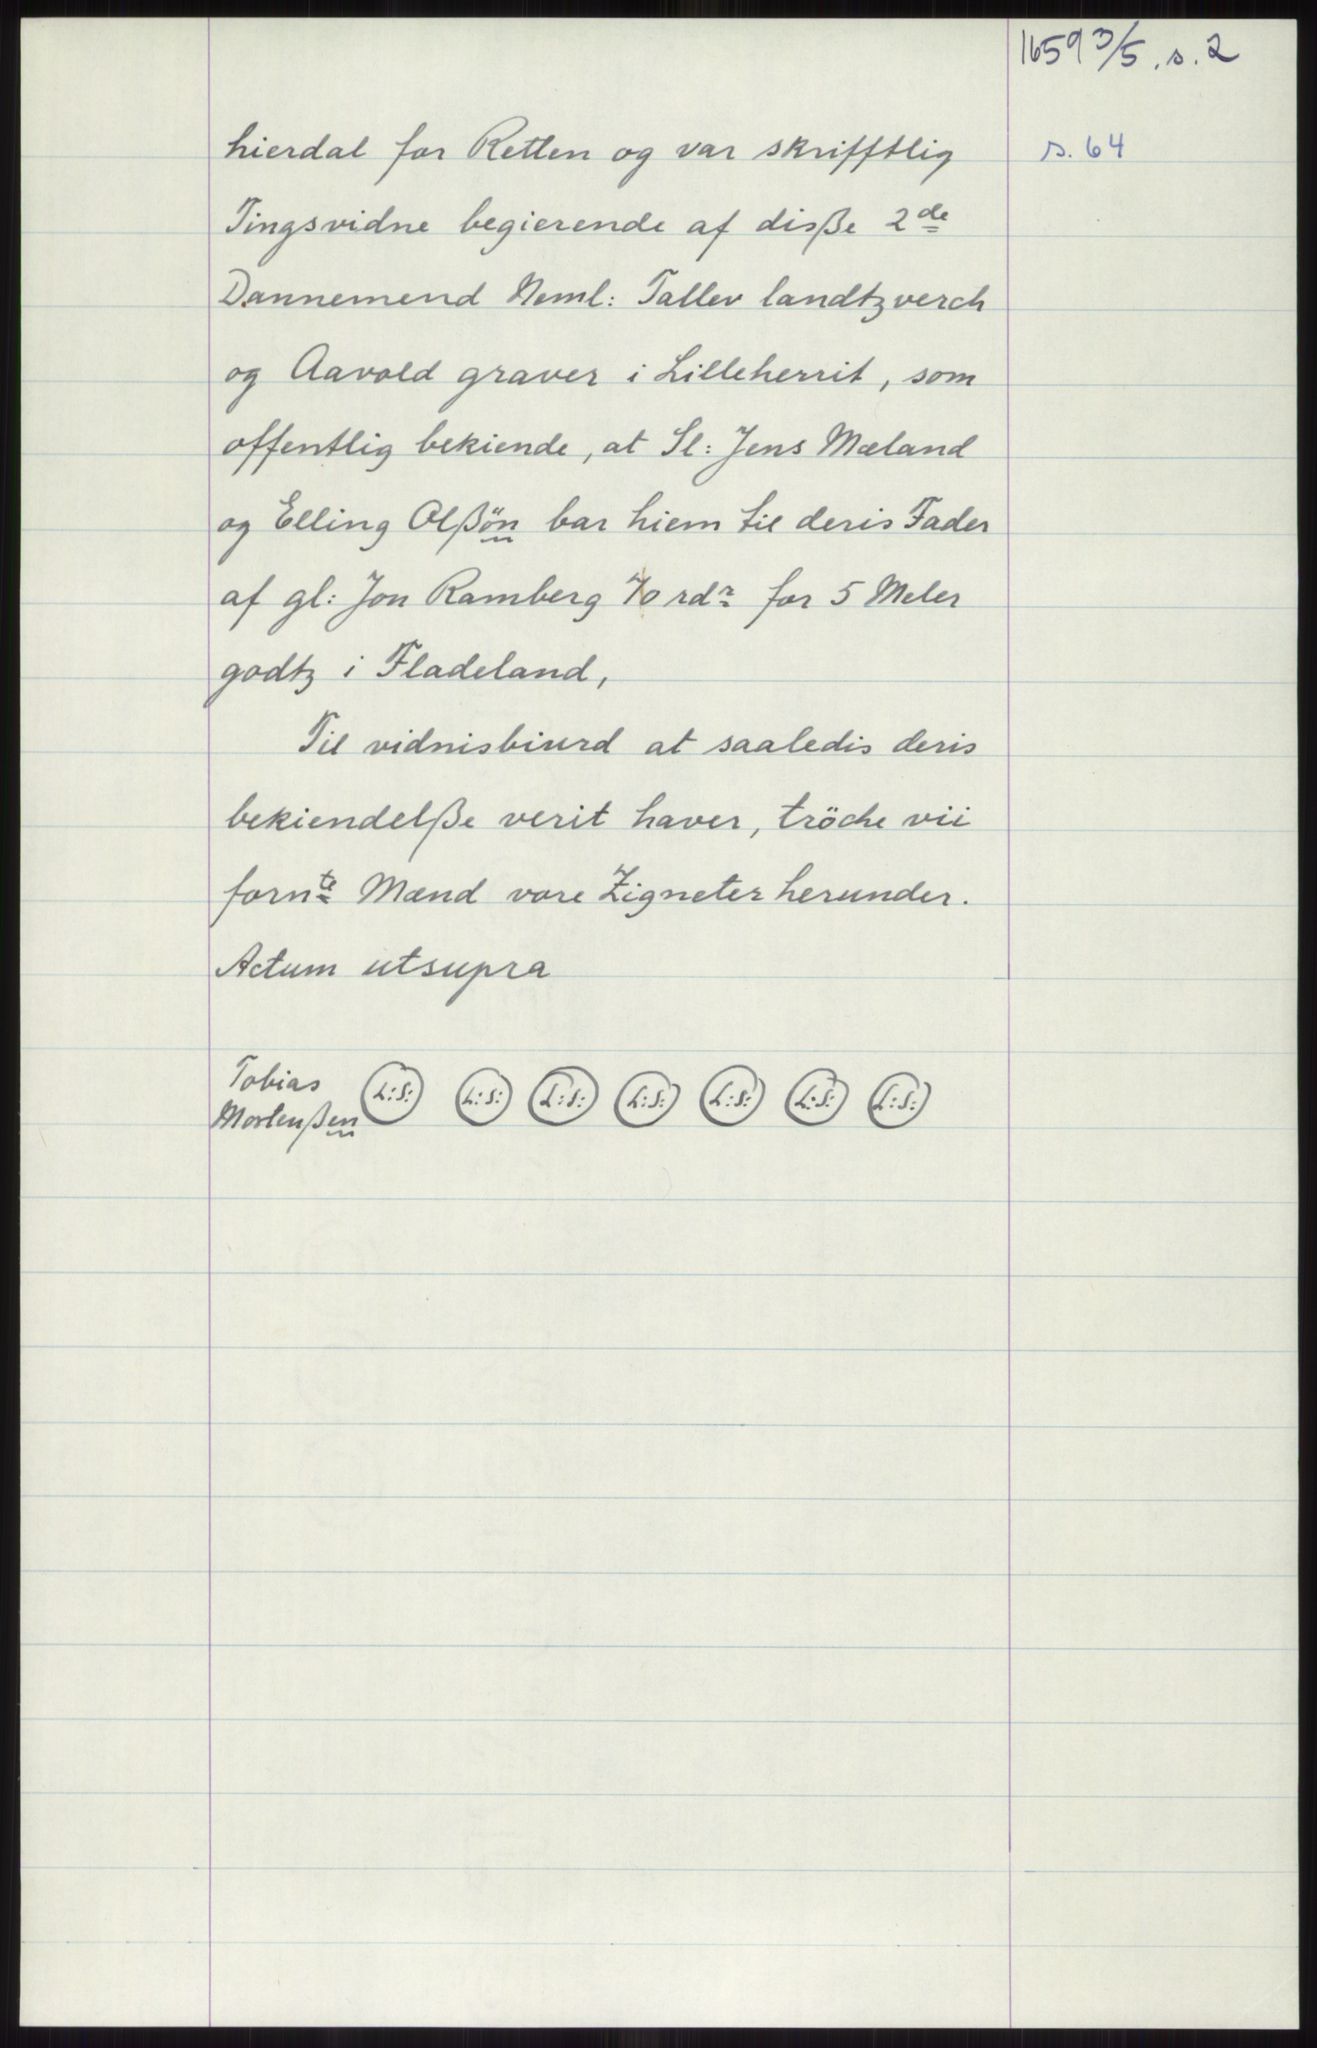 1659 3/5 . s. 2
hierdal for Retten og var skrifftlig s. 64
Tingsvidne begierende af disße 2de
Dannemend Neml: Tallev landtzverch
og Aavold graver i Lilleherrit, som
offentlig bekiende, at Sl: Jens Mæland
og Elling Olßön bar hiem til deris Fader
af gl: Jon Ramberg 70 rdr for 5 Meler
godtz i Fladeland,
Til vidnisbiurd at saaledis deris
bekiendelße verit haver, tröche vii
fornte Mænd vore Zigneter herunder.
Actum utsupra
Tobias
Mortenßen L:S: L:S: L:S: L:S: L:S: L:S: L:S: